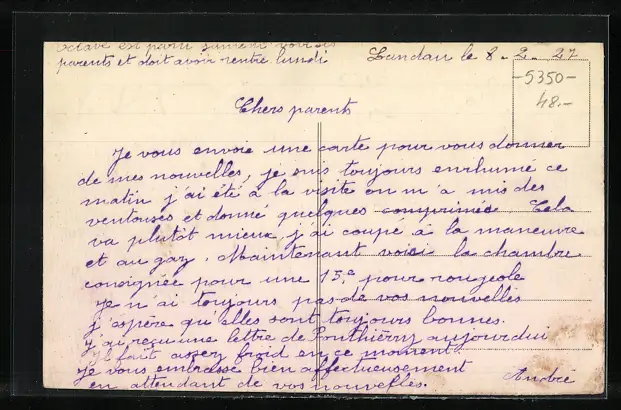 Octave est parti samedi voir ses
parents et doit avoir rentré lundi
Landau le 8-2-27
-5350-
48.-
Chers parents
Je vous envoie une carte pour vous donner
de mes nouvelles, je suis toujours enrhumé ce
matin j'ai été à la visite on m'a mis des
ventouses et donné quelques comprimés Cela
va plutôt mieux, j'ai coupé à la maneuvre
et au gaz. Maintenant voici la chambre
consignée pour une 13e pour rougeole
Je n'ai toujours pas de vos nouvelles
j'espère qu'elles sont toujours bonnes.
J'ai reçu une lettre de Ponthierry aujourdui
Il fait assez froid en ce moment.
Je vous embrasse bien affectueusement
en attendant de vos nouvelles.
André